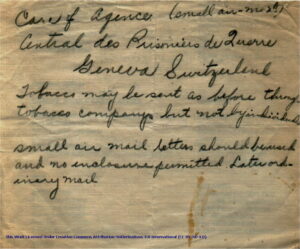 Care of Agence (small air-mail)
Central des Prisoniers de Guerre
Geneva Switzerland
Tobacco may be sent as before through
tobacco companys but not by individuals
small air mail letters should be used
and no inclosure permitted. Later ord-
inary mail
This Work is licensed under Creative Commons Attribution-NonCommercial 4.0 International (CC BY-NC 4.0)